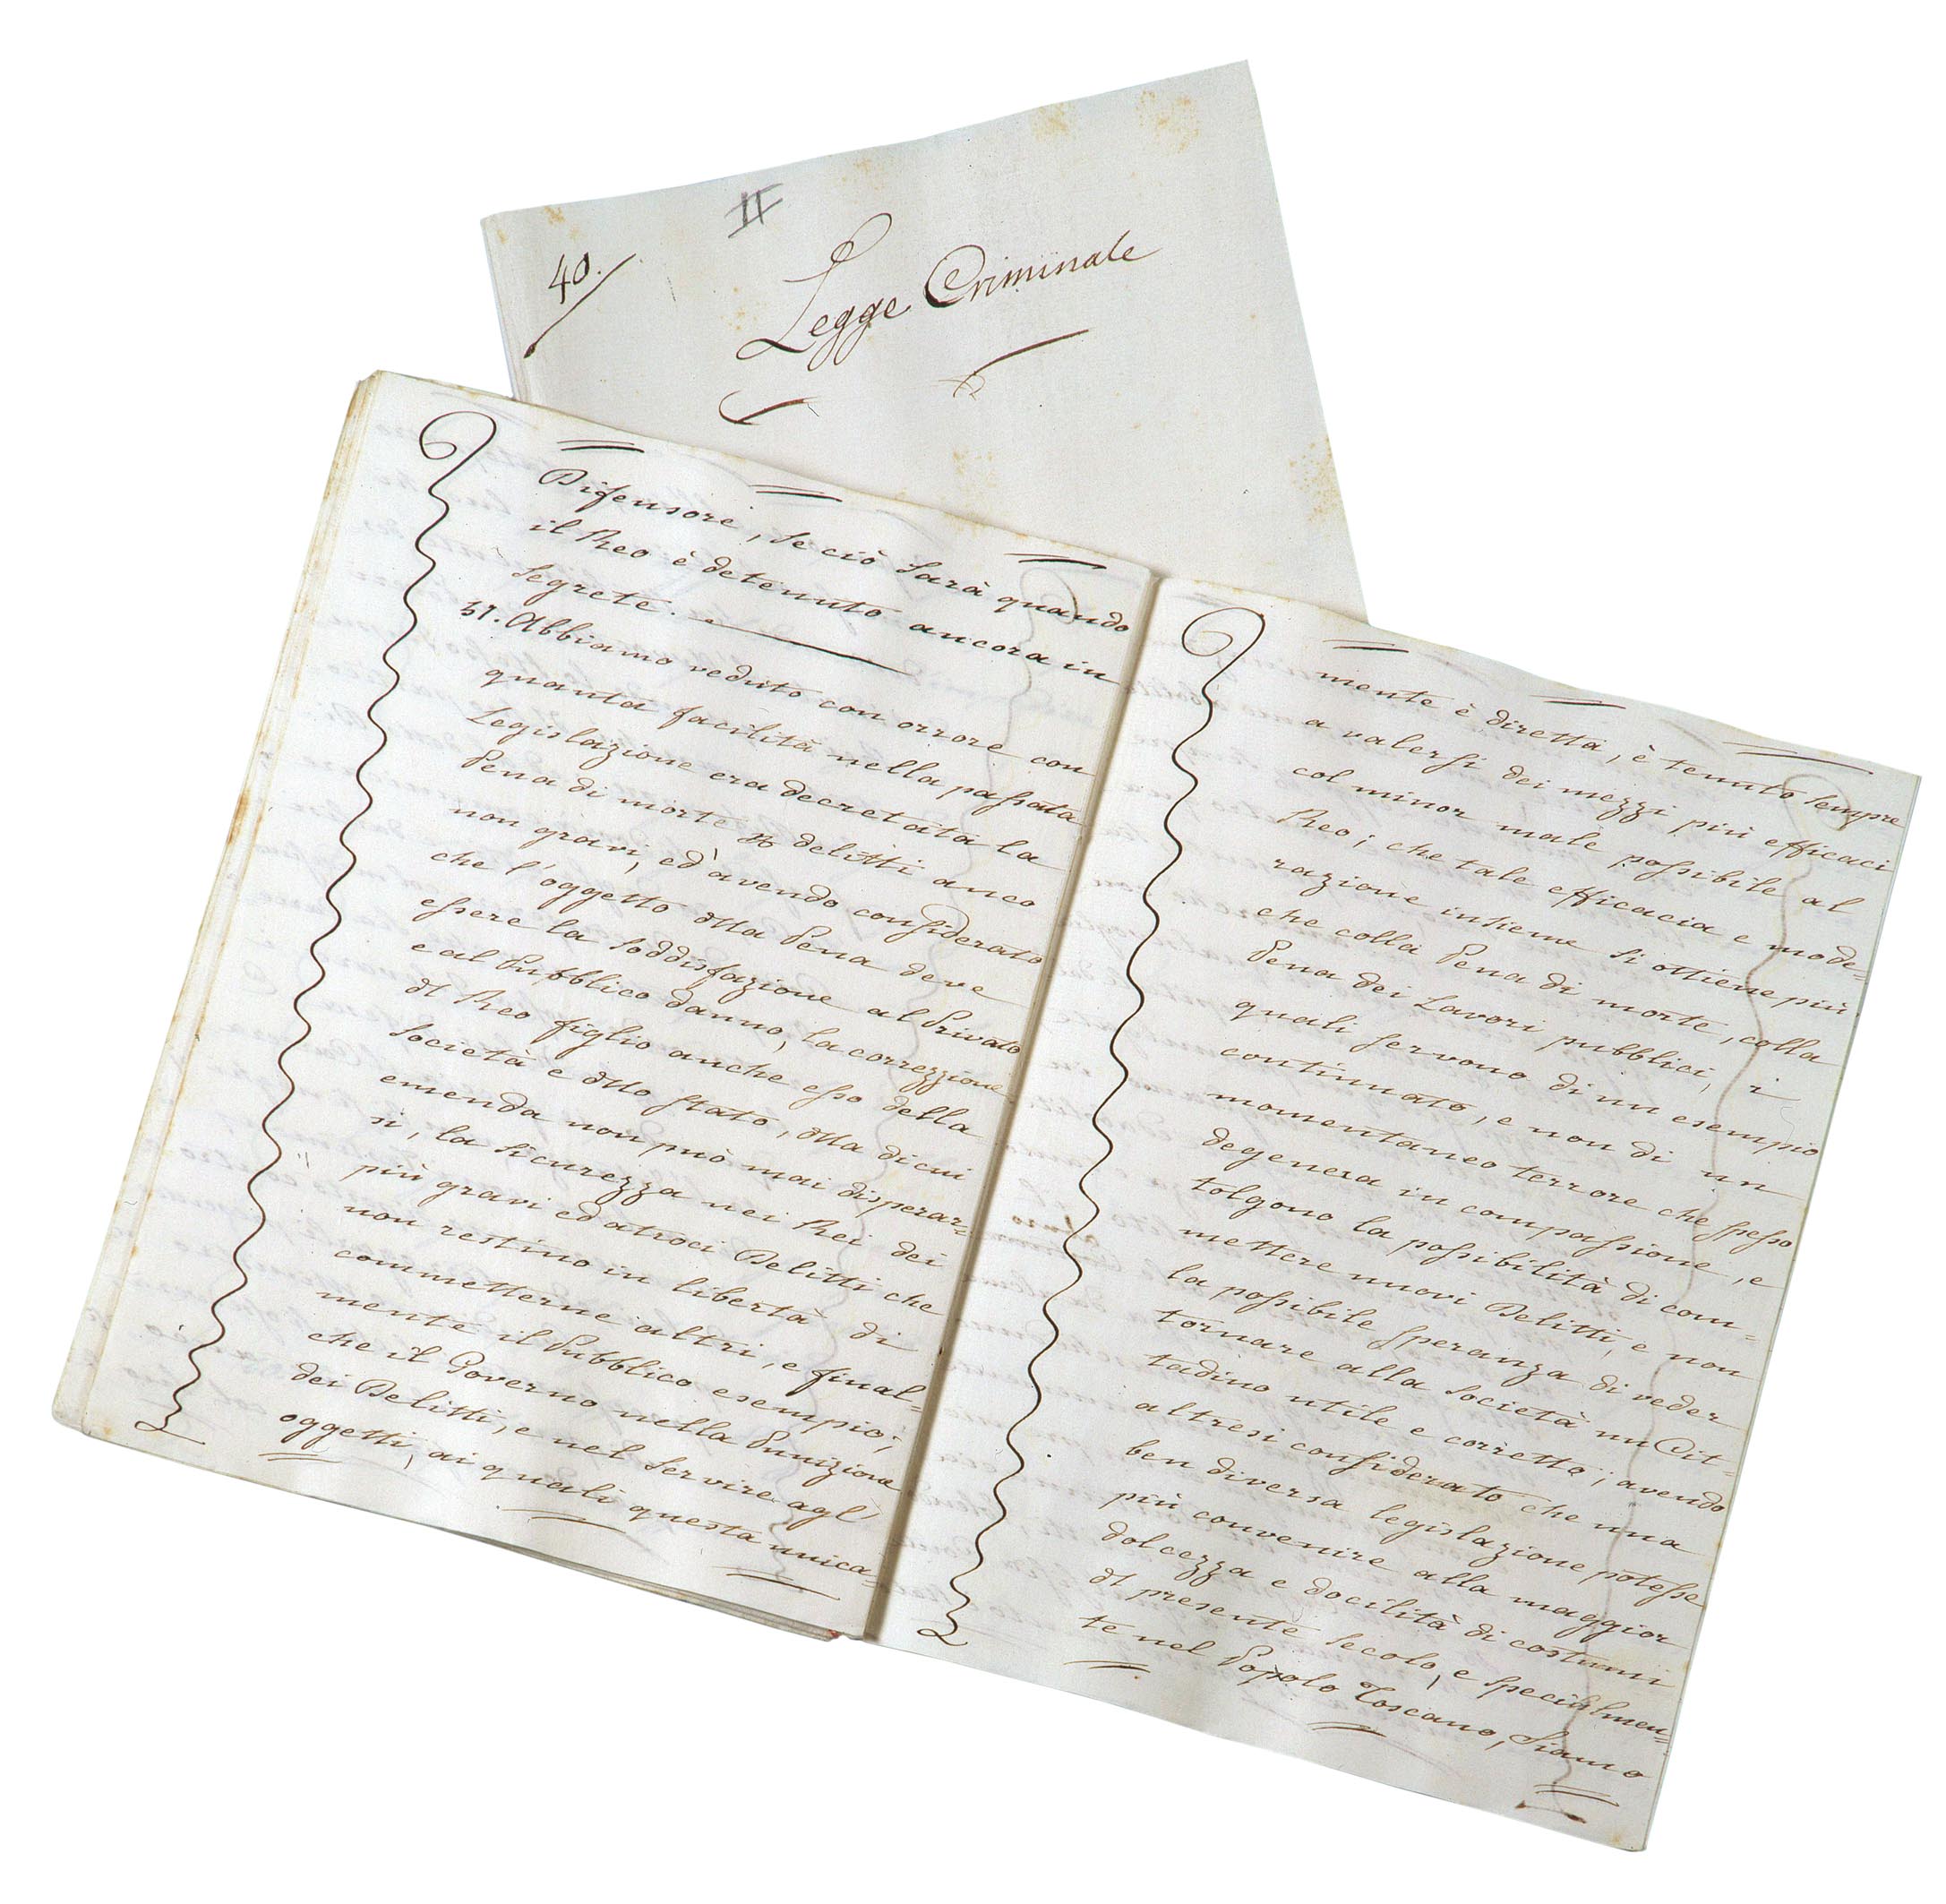 II
40.
Legge Criminale
Difensore, se ciò sarà quando
il Reo è detenuto ancora in
segrete.
51. Abbiamo veduto con orrore con
quanta facilità nella passata
Legislazione era decretata la
Pena di morte p delitti anco
non gravi, ed avendo considerato
che l'oggetto della Pena deve
essere la soddisfazione al Privato
e al Pubblico danno, la correzzione
del Reo figlio anche esso della
società e dello stato, della di cui
emenda non può mai disperar=
si, la sicurezza nei Rei dei
più gravi ed atroci Delitti che
non restino in libertà di
commetterne altri, e final=
mente il Pubblico esempio;
che il Governo nella Punizione
dei Delitti, e nel servire agl'
oggetti, ai quali questa unica=
mente è diretta, è tenuto sempre
a valersi dei mezzi più efficaci
col minor male possibile al
Reo; che tale efficacia e mode=
razione insieme si ottiene più
che colla Pena di morte, colla
Pena dei Lavori pubblici, i
quali servono di un esempio
continuato, e non di un
momentaneo terrore che spesso
degenera in compassione, e
tolgono la possibilità di com=
mettere nuovi Delitti, e non
la possibile speranza di veder
tornare alla società un Cit=
tadino utile e corretto; avendo
altresì considerato che una
ben diversa legislazione potesse
più convenire alla maggior
dolcezza e docilità di costumi
del presente secolo, e specialmen=
te nel Popolo Toscano, Siamo